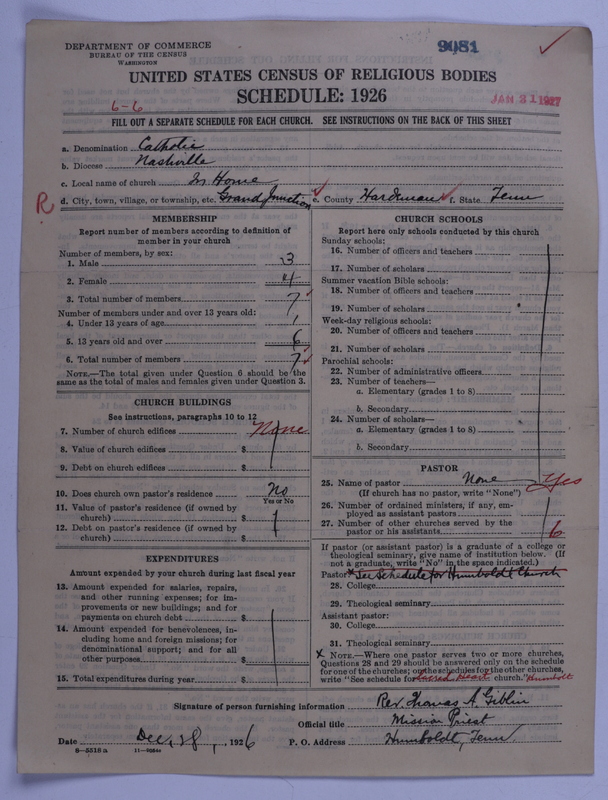 DEPARTMENT OF COMMERCE
BUREAU OF THE CENSUS
WASHINGTON
9081
UNITED STATES CENSUS OF RELIGIOUS BODIES
SCHEDULE: 1926
6-6
JAN 31 1927
FILL OUT A SEPARATE SCHEDULE FOR EACH CHURCH. SEE INSTRUCTIONS ON THE BACK OF THIS SHEET
a. Denomination Catholic
b. Diocese Nashville
c. Local name of church In Home
R d. City, town, village, or township, etc. Grand Junction e. County Hardeman f. State Tenn
MEMBERSHIP
Report number of members according to definition of
member in your church
Number of members, by sex:
1. Male 3
2. Female 4
3. Total number of members 7
Number of members under and over 13 years old:
4. Under 13 years of age 1
5. 13 years old and over 6
6. Total number of members 7
NOTE.—The total given under Question 6 should be the
same as the total of males and females given under Question 3.
CHURCH BUILDINGS
See instructions, paragraphs 10 to 12
7. Number of church edifices None
8. Value of church edifices $
9. Debt on church edifices $
10. Does church own pastor's residence No
Yes or No
11. Value of pastor's residence (if owned by
church) $
12. Debt on pastor's residence (if owned by
church) $
EXPENDITURES
Amount expended by your church during last fiscal year
13. Amount expended for salaries, repairs,
and other running expenses; for im-
provements or new buildings; and for
payments on church debt $
14. Amount expended for benevolences, in-
cluding home and foreign missions; for
denominational support; and for all
other purposes $
15. Total expenditures during year $
CHURCH SCHOOLS
Report here only schools conducted by this church
Sunday schools:
16. Number of officers and teachers
17. Number of scholars
Summer vacation Bible schools:
18. Number of officers and teachers
19. Number of scholars
Week-day religious schools:
20. Number of officers and teachers
21. Number of scholars
Parochial schools:
22. Number of administrative officers
23. Number of teachers—
a. Elementary (grades 1 to 8)
b. Secondary
24. Number of scholars—
a. Elementary (grades 1 to 8)
b. Secondary
PASTOR
25. Name of pastor None Yes
(If church has no pastor, write "None")
26. Number of ordained ministers, if any, em-
ployed as assistant pastors
27. Number of other churches served by the
pastor or his assistants 6
If pastor (or assistant pastor) is a graduate of a college or
theological seminary, give name of institution below. (If
not a graduate, write "No" in the space indicated.)
Pastor: See Schedule for Humboldt Church
28. College
29. Theological seminary
Assistant pastor:
30. College
31. Theological seminary
x NOTE.—Where one pastor serves two or more churches,
Questions 28 and 29 should be answered only on the schedule
for one of the churches; on the schedules for the other churches,
write "See schedule for Sacred Heart church." Humboldt
Signature of person furnishing information Rev. Thomas A. Giblin
Official title Mission Priest
Date Dec. 28, 1926 P. O. Address Humboldt, Tenn
8—5318a